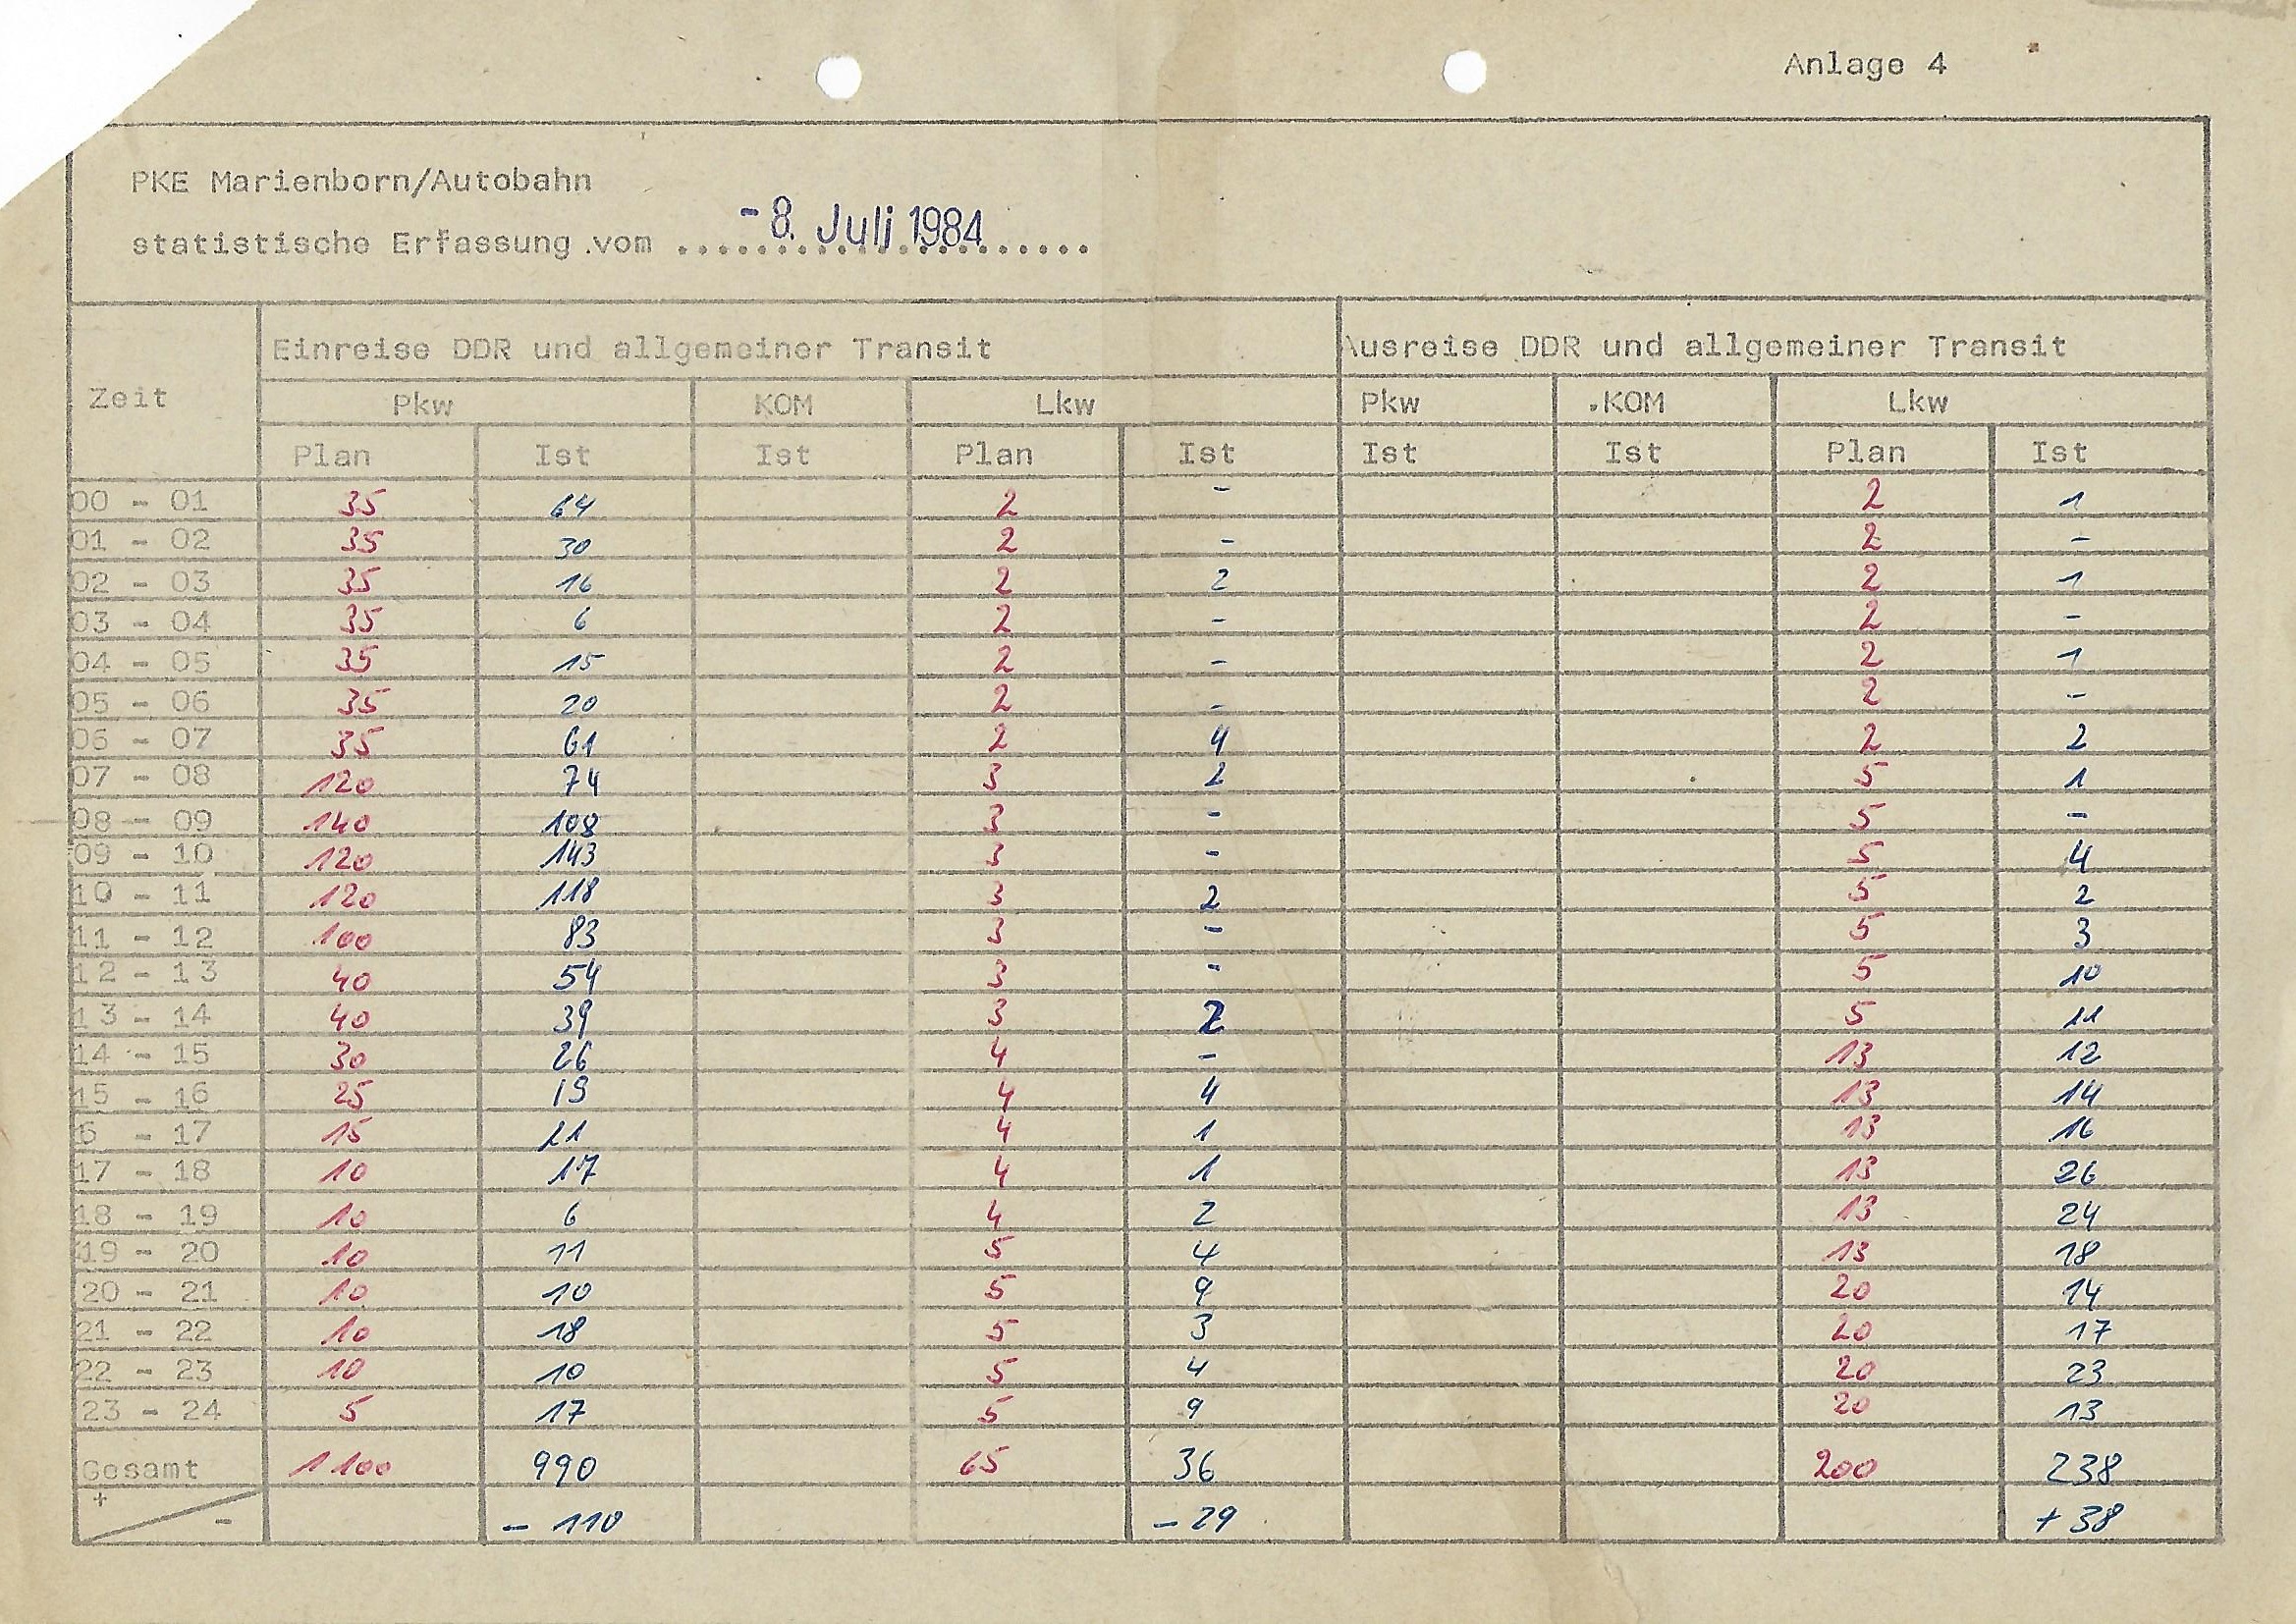 Anlage 4
PKE Marienborn/Autobahn
statistische Erfassung vom -8. Juli 1984
Zeit Einreise DDR und allgemeiner Transit Ausreise DDR und allgemeiner Transit
Pkw KOM Lkw Pkw KOM Lkw
Plan Ist Ist Plan Ist Ist Ist Plan Ist
00 - 01 35 64 2 - 2 1
01 - 02 35 30 2 - 2 -
02 - 03 35 16 2 2 2 1
03 - 04 35 6 2 - 2 -
04 - 05 35 15 2 - 2 1
05 - 06 35 20 2 - 2 -
06 - 07 35 61 2 4 2 2
07 - 08 120 74 3 2 5 1
08 - 09 140 108 3 - 5 -
09 - 10 120 143 3 - 5 4
10 - 11 120 118 3 2 5 2
11 - 12 100 83 3 - 5 3
12 - 13 40 54 3 - 5 10
13 - 14 40 39 3 2 5 11
14 - 15 30 26 4 - 13 12
15 - 16 25 19 4 4 13 14
6 - 17 15 21 4 1 13 16
17 - 18 10 17 4 1 13 26
18 - 19 10 6 4 2 13 24
19 - 20 10 11 5 4 13 18
20 - 21 10 10 5 9 20 14
21 - 22 10 18 5 3 20 17
22 - 23 10 10 5 4 20 23
23 - 24 5 17 5 9 20 13
Gesamt 1100 990 65 36 200 238
+ - - 110 - 29 + 38